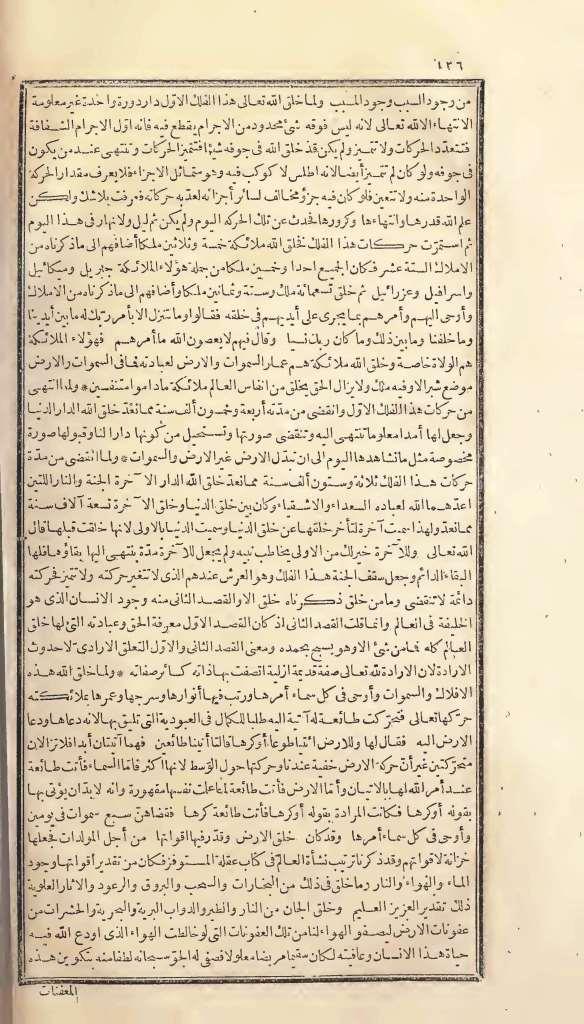 ١٢٦
من وجود السبب وجود المسبب ولما خلق الله تعالى هذا الفلك الاول دار دورة واحدة غير معلومة
الانتهاء الا لله تعالى لانه ليس فوقه شئ محدود من الاجرام يقطع فيه فانه أول الاجرام الشفافة
فتتعدد الحركات وتتميز ولم يكن قد خلق الله فى جوفه شيأ فتتميز الحركات وتنتهى عند من يكون
فى جوفه ولو كان لم تتميز أيضا لانه اطلس لا كوكب فيه وهو متماثل الاجزاء فلا يعرف مقدار الحركة
الواحدة منه ولا تتعين فلو كان فيه جزء مخالف لسائر أجزائه لعد به حركاته عرفت بلاشك ولكن
علم الله قدرها وانتهاءها وكرورها فحدث عن تلك الحركة اليوم ولم يكن ثم ليل ولا نهار فى هذا اليوم
ثم استمرت حركات هذا الفلك فخلق الله ملائكة خمسة وثلاثين ملكا أضافهم الى ما ذكرناه من
الاملاك الستة عشر فكان الجميع احدا وخمسين ملكا من جملة هؤلاء الملائكة جبريل وميكائيل
واسرافيل وعزرائيل ثم خلق تسعمائة ملك وستة وثمانين ملكا وأضافهم الى ما ذكرناه من الاملاك
وأوحى اليهم وأمرهم بما يجرى على أيديهم فى خلقه فقالوا وما نتنزل الا بأمر ربك له ما بين أيدينا
وما خلفنا وما بين ذلك وما كان ربك نسيا وقال فيهم لا يعصون الله ما أمرهم فهؤلاء الملائكة
هم الولاة خاصة وخلق الله ملائكة هم عمار السموات والارض لعبادته فما فى السموات والارض
موضع شبر الا وفيه ملك ولا يزال الحق يخلق من انفاس العالم ملائكة ما داموا متنفسين * ولما انتهى
من حركات هذا الفلك الاول وانقضى من مدته أربعة وخمسون ألف سنة مما تعد خلق الله الدار الدنيا
وجعل لها أمدا معلوما تنتهى اليه وتنقضى صورتها وتستحيل من كونها دارا لنا وقبولها صورة
مخصوصة مثل ما نشاهدها اليوم الى ان تبدل الارض غير الارض والسموات * ولما انقضى من مدة
حركات هذا الفلك ثلاثة وستون ألف سنة مما تعد خلق الله الدار الآخرة الجنة والنار اللتين
اعدهما الله لعباده السعداء والاشقياء وكان بين خلق الدنيا وخلق الآخرة تسعة آلاف سنة
مما تعد ولهذا سميت آخرة لتأخر خلقها عن خلق الدنيا وسميت الدنيا بالاولى لانها خلقت قبلها قال
الله تعالى وللآخرة خير لك من الاولى يخاطب نبيه ولم يجعل للآخرة مدة ينتهى اليها بقاؤها فلها
البقاء الدائم وجعل سقف الجنة هذا الفلك وهو العرش عندهم الذى لا تتعين حركته ولا تتميز فحركته
دائمة لا تنقضى وما من خلق ذكرناه خلق الا والقصد الثانى منه وجود الانسان الذى هو
الخليفة فى العالم وانما قلت القصد الثانى اذ كان القصد الاول معرفة الحق وعبادته التى لها خلق
العالم كله فما من شئ الا وهو يسبح بحمده ومعنى القصد الثانى والاول التعلق الارادى لا حدوث
الارادة لان الارادة لله تعالى صفة قديمة ازلية اتصفت بها ذاته كسائر صفاته * ولما خلق الله هذه
الافلاك والسموات وأوحى فى كل سماء أمرها ورتب فيها أنوارها وسرجها وعمرها بملائكته
حركها تعالى فتحركت طائعة لله آتية اليه طلبا للكمال فى العبودية التى تليق بها لانه دعاها ودعا
الارض اليه فقال لها وللارض ائتيا طوعا أو كرها قالتا أتينا طائعين فهما آتيتان أبدا فلا تزالان
متحركتين غير أن حركة الارض خفية عندنا وحركتها حول الوسط لانها اكثر فاما السماء فأتت طائعة
عند أمر الله لها بالاتيان وأما الارض فأتت طائعة لما علمت نفسها مقهورة وانه لا بد ان يؤتى بها
بقوله أوكرها فكانت المرادة بقوله أوكرها فأتت طائعة كرها فقضاهن سبع سموات فى يومين
وأوحى فى كل سماء أمرها وقد كان خلق الارض وقدر فيها اقواتها من أجل المولدات فجعلها
خزانة لاقواتهم وقد ذكرنا ترتيب نشأة العالم فى كتاب عقلة المستوفز فكان من تقدير أقواتها وجود
الماء والهواء والنار وما خلق فى ذلك من البخارات والسحب والبروق والرعود والاثار العلوية
ذلك تقدير العزيز العليم وخلق الجان من النار والطير والدواب البرية والبحرية والحشرات من
عفونات الارض ليصفو الهواء لنا من تلك العفونات التى لو خالطت الهواء الذى اودع الله فيه
حياة هذا الانسان وعافيته لكان سقيما مريضا معلولا فصفى له الحق سبحانه لطفا منه بتكوين هذه
المعفنات